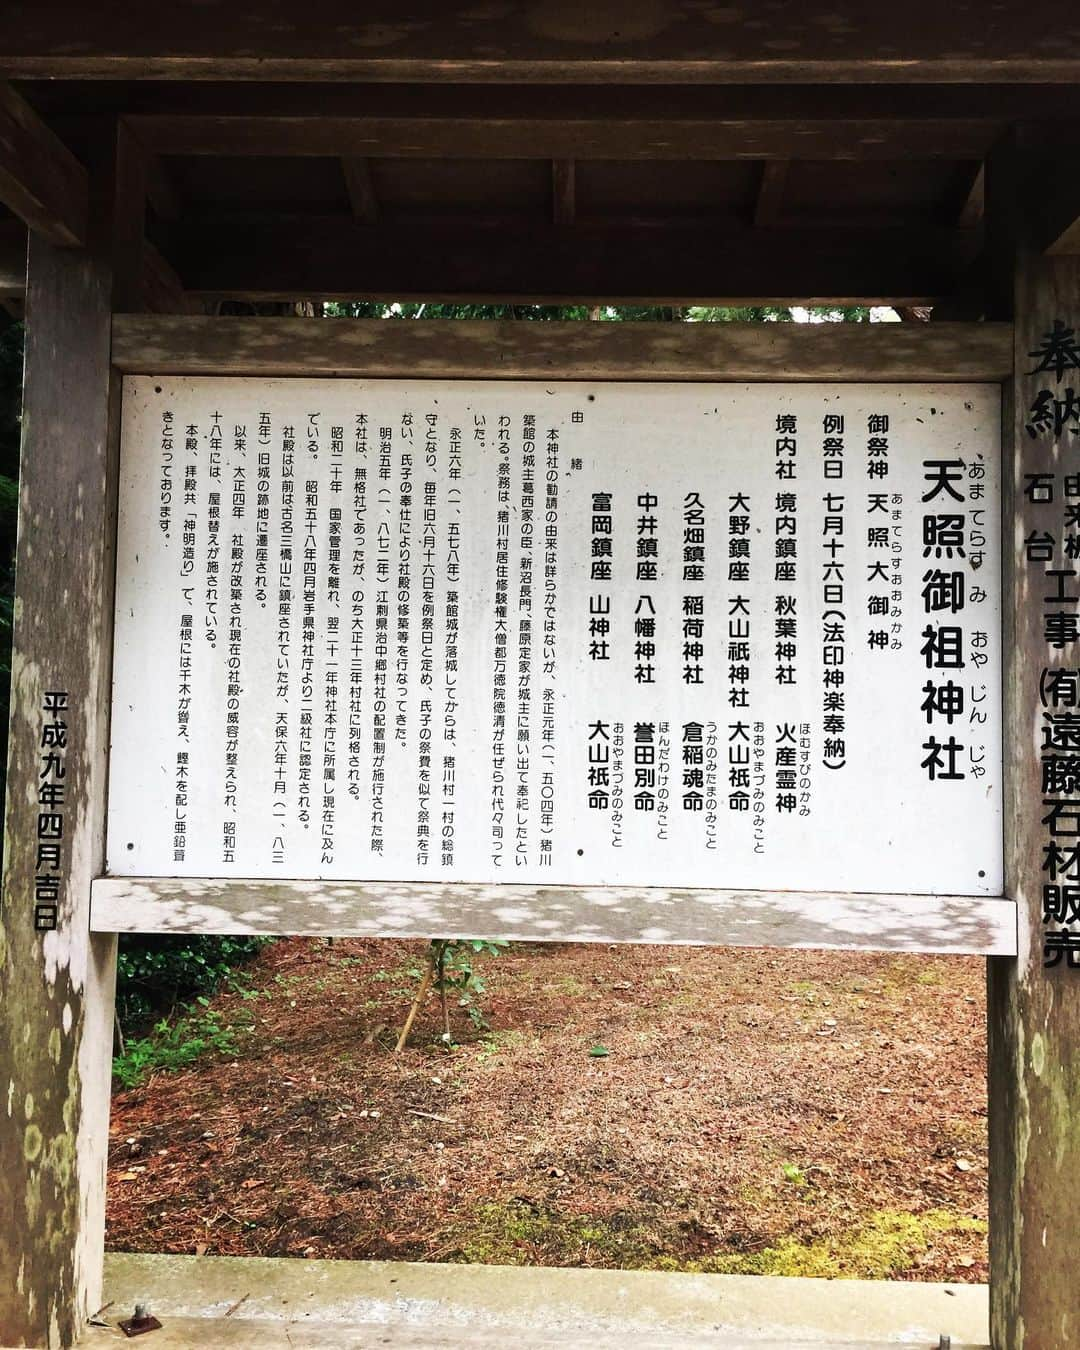 天照御祖神社
あまてらす み おや じん じゃ
御祭神 天照大御神
あまてらすおおみかみ
例祭日 七月十六日(法印神楽奉納)
境内社 境内鎮座 秋葉神社 火産霊神
ほむすびのかみ
大野鎮座 大山祇神社 大山祇命
おおやまづみのみこと
久名畑鎮座 稲荷神社 倉稲魂命
うかのみたまのみこと
中井鎮座 八幡神社 誉田別命
ほんだわけのみこと
富岡鎮座 山神社 大山祇命
おおやまづみのみこと
由 緒
本神社の勧請の由来は詳らかではないが、永正元年(一、五〇四年)猪川
築館の城主葛西家の臣、新沼長門、藤原定家が城主に願い出て奉祀したとい
われる。祭務は、猪川村居住修験権大僧都万徳院徳清が任ぜられ代々司って
いた。
永正六年(一、五七八年)築館城が落城してからは、猪川村一村の総鎮
守となり、毎年旧六月十六日を例祭日と定め、氏子の祭費を似て祭典を行
ない、氏子の奉仕により社殿の修築等を行なってきた。
明治五年(一、八七二年)江刺県治中郷村社の配置制が施行された際、
本社は、無格社であったが、のち大正十三年村社に列格される。
昭和二十年 国家管理を離れ、翌二十一年神社本庁に所属し現在に及ん
でいる。 昭和五十八年四月岩手県神社庁より二級社に認定される。
社殿は以前は古名三橋山に鎮座されていたが、天保六年十月(一、八三
五年)旧城の跡地に遷座される。
以来、大正四年 社殿が改築され現在の社殿の威容が整えられ、昭和五
十八年には、屋根替えが施されている。
本殿、拝殿共「神明造り」で、屋根には千木が聳え、鰹木を配し亜鉛葺
きとなっております。
奉納 由来板
石台 工事 (有)遠藤石材販売
平成九年四月吉日